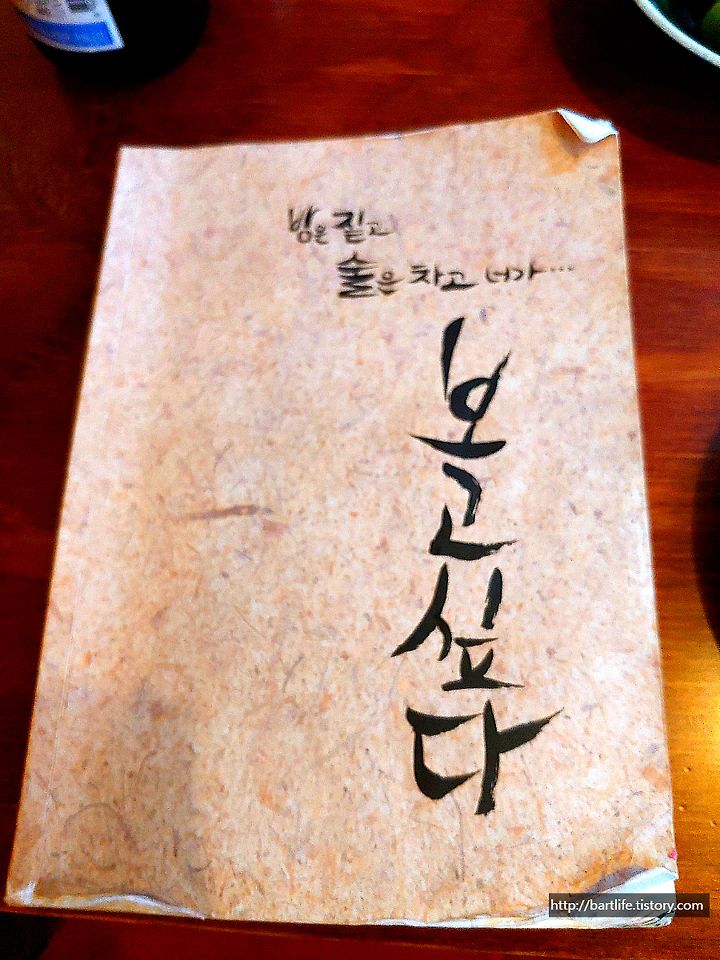 밤은 짙고
술은 차고 너가...
보고싶다
http://bartlife.tistory.com